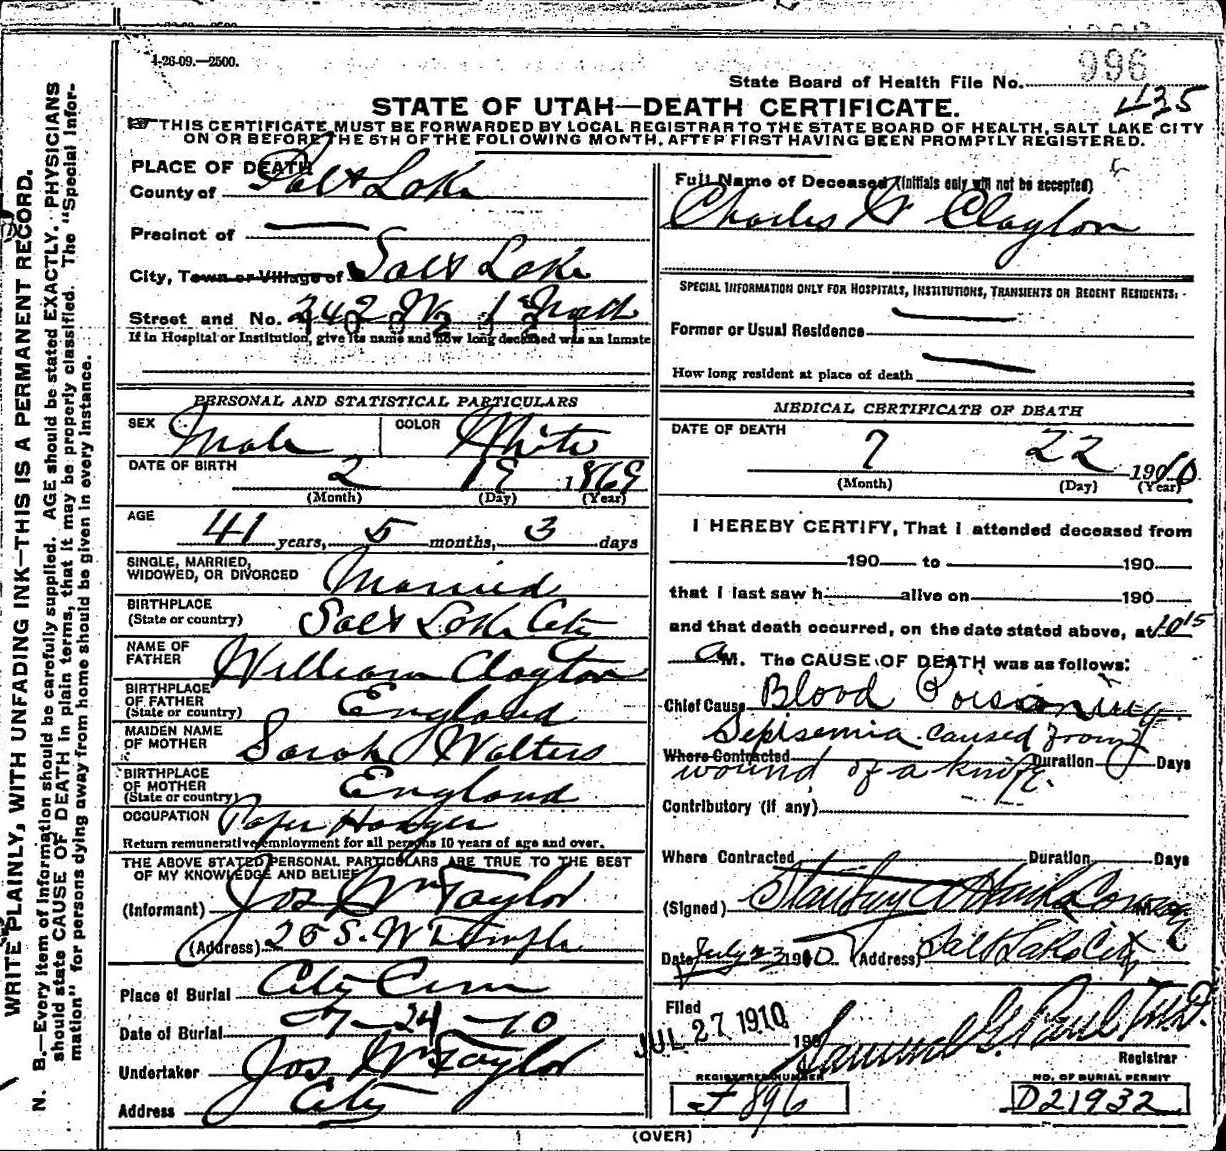 4-26-09.—2500.
State Board of Health File No. 996
435
STATE OF UTAH—DEATH CERTIFICATE.
THIS CERTIFICATE MUST BE FORWARDED BY LOCAL REGISTRAR TO THE STATE BOARD OF HEALTH, SALT LAKE CITY
ON OR BEFORE THE 5TH OF THE FOLLOWING MONTH, AFTER FIRST HAVING BEEN PROMPTLY REGISTERED.
WRITE PLAINLY, WITH UNFADING INK—THIS IS A PERMANENT RECORD.
N. B.—Every item of information should be carefully supplied. AGE should be stated EXACTLY. PHYSICIANS
should state CAUSE OF DEATH in plain terms, that it may be properly classified. The "Special Infor-
mation" for persons dying away from home should be given in every instance.
PLACE OF DEATH
County of Salt Lake
Precinct of
City, Town or Village of Salt Lake
Street and No. 242 W 1st North
If in Hospital or Institution, give its name and how long deceased was an Inmate
PERSONAL AND STATISTICAL PARTICULARS
SEX Male COLOR White
DATE OF BIRTH 2 19 1869
(Month) (Day) (Year)
AGE 41 years, 5 months, 3 days
SINGLE, MARRIED,
WIDOWED, OR DIVORCED Married
BIRTHPLACE
(State or country) Salt Lake City
NAME OF
FATHER William Clayton
BIRTHPLACE
OF FATHER
(State or country) England
MAIDEN NAME
OF MOTHER Sarah Walters
BIRTHPLACE
OF MOTHER
(State or country) England
OCCUPATION Paper Hanger
Return remunerative employment for all persons 10 years of age and over.
THE ABOVE STATED PERSONAL PARTICULARS ARE TRUE TO THE BEST
OF MY KNOWLEDGE AND BELIEF
(Informant) Jos Wm Taylor
(Address) 25 S. W Temple
Place of Burial City Cem
Date of Burial 7-24-10
Undertaker Jos. Wm Taylor
Address City
Full Name of Deceased (Initials only will not be accepted)
Charles W Clayton
SPECIAL INFORMATION ONLY FOR HOSPITALS, INSTITUTIONS, TRANSIENTS OR RECENT RESIDENTS.
Former or Usual Residence
How long resident at place of death
MEDICAL CERTIFICATE OF DEATH
DATE OF DEATH
7 22 1910
(Month) (Day) (Year)
I HEREBY CERTIFY, That I attended deceased from
190 to 190
that I last saw h alive on 190
and that death occurred, on the date stated above, at 10 15
a M. The CAUSE OF DEATH was as follows:
Chief Cause Blood Poisoning
Sepisemia caused from
Where Contracted Duration Days
wound of a knife.
Contributory (if any)
Where Contracted Duration Days
(Signed)
Date July 23 1910 (Address) Salt Lake City
Filed
JUL 27 1910 190
Samuel G. Paul M.D.
Registrar
REGISTERED NUMBER
F 896
NO. OF BURIAL PERMIT
D21932
(OVER)